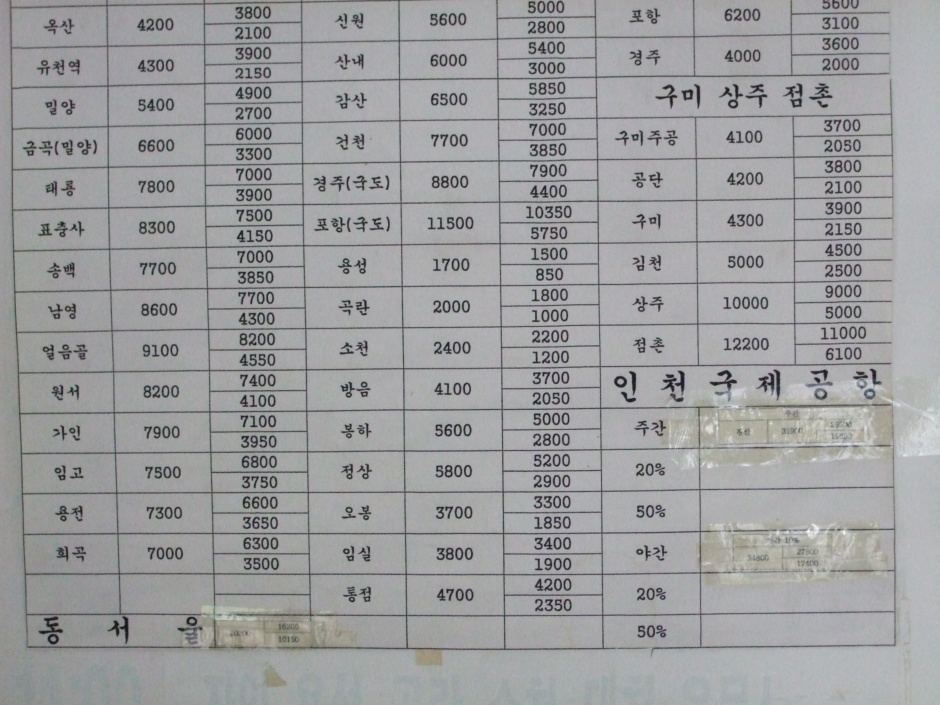 옥산 4200 3800 2100 신원 5600 5000 2800 포항 6200 5600 3100
유천역 4300 3900 2150 산내 6000 5400 3000 경주 4000 3600 2000
밀양 5400 4900 2700 감산 6500 5850 3250 구미 상주 점촌
금곡(밀양) 6600 6000 3300 건천 7700 7000 3850 구미주공 4100 3700 2050
태룡 7800 7000 3900 경주(국도) 8800 7900 4400 공단 4200 3800 2100
표충사 8300 7500 4150 포항(국도) 11500 10350 5750 구미 4300 3900 2150
송백 7700 7000 3850 용성 1700 1500 850 김천 5000 4500 2500
남영 8600 7700 4300 곡란 2000 1800 1000 상주 10000 9000 5000
얼음골 9100 8200 4550 소천 2400 2200 1200 점촌 12200 11000 6100
원서 8200 7400 4100 방음 4100 3700 2050 인천국제공항
가인 7900 7100 3950 봉하 5600 5000 2800 주간
임고 7500 6800 3750 정상 5800 5200 2900 20%
용전 7300 6600 3650 오봉 3700 3300 1850 50%
희곡 7000 6300 3500 임실 3800 3400 1900 야간 34800 27800 17400
통점 4700 4200 2350 20%
동서울 16200 10150 50%